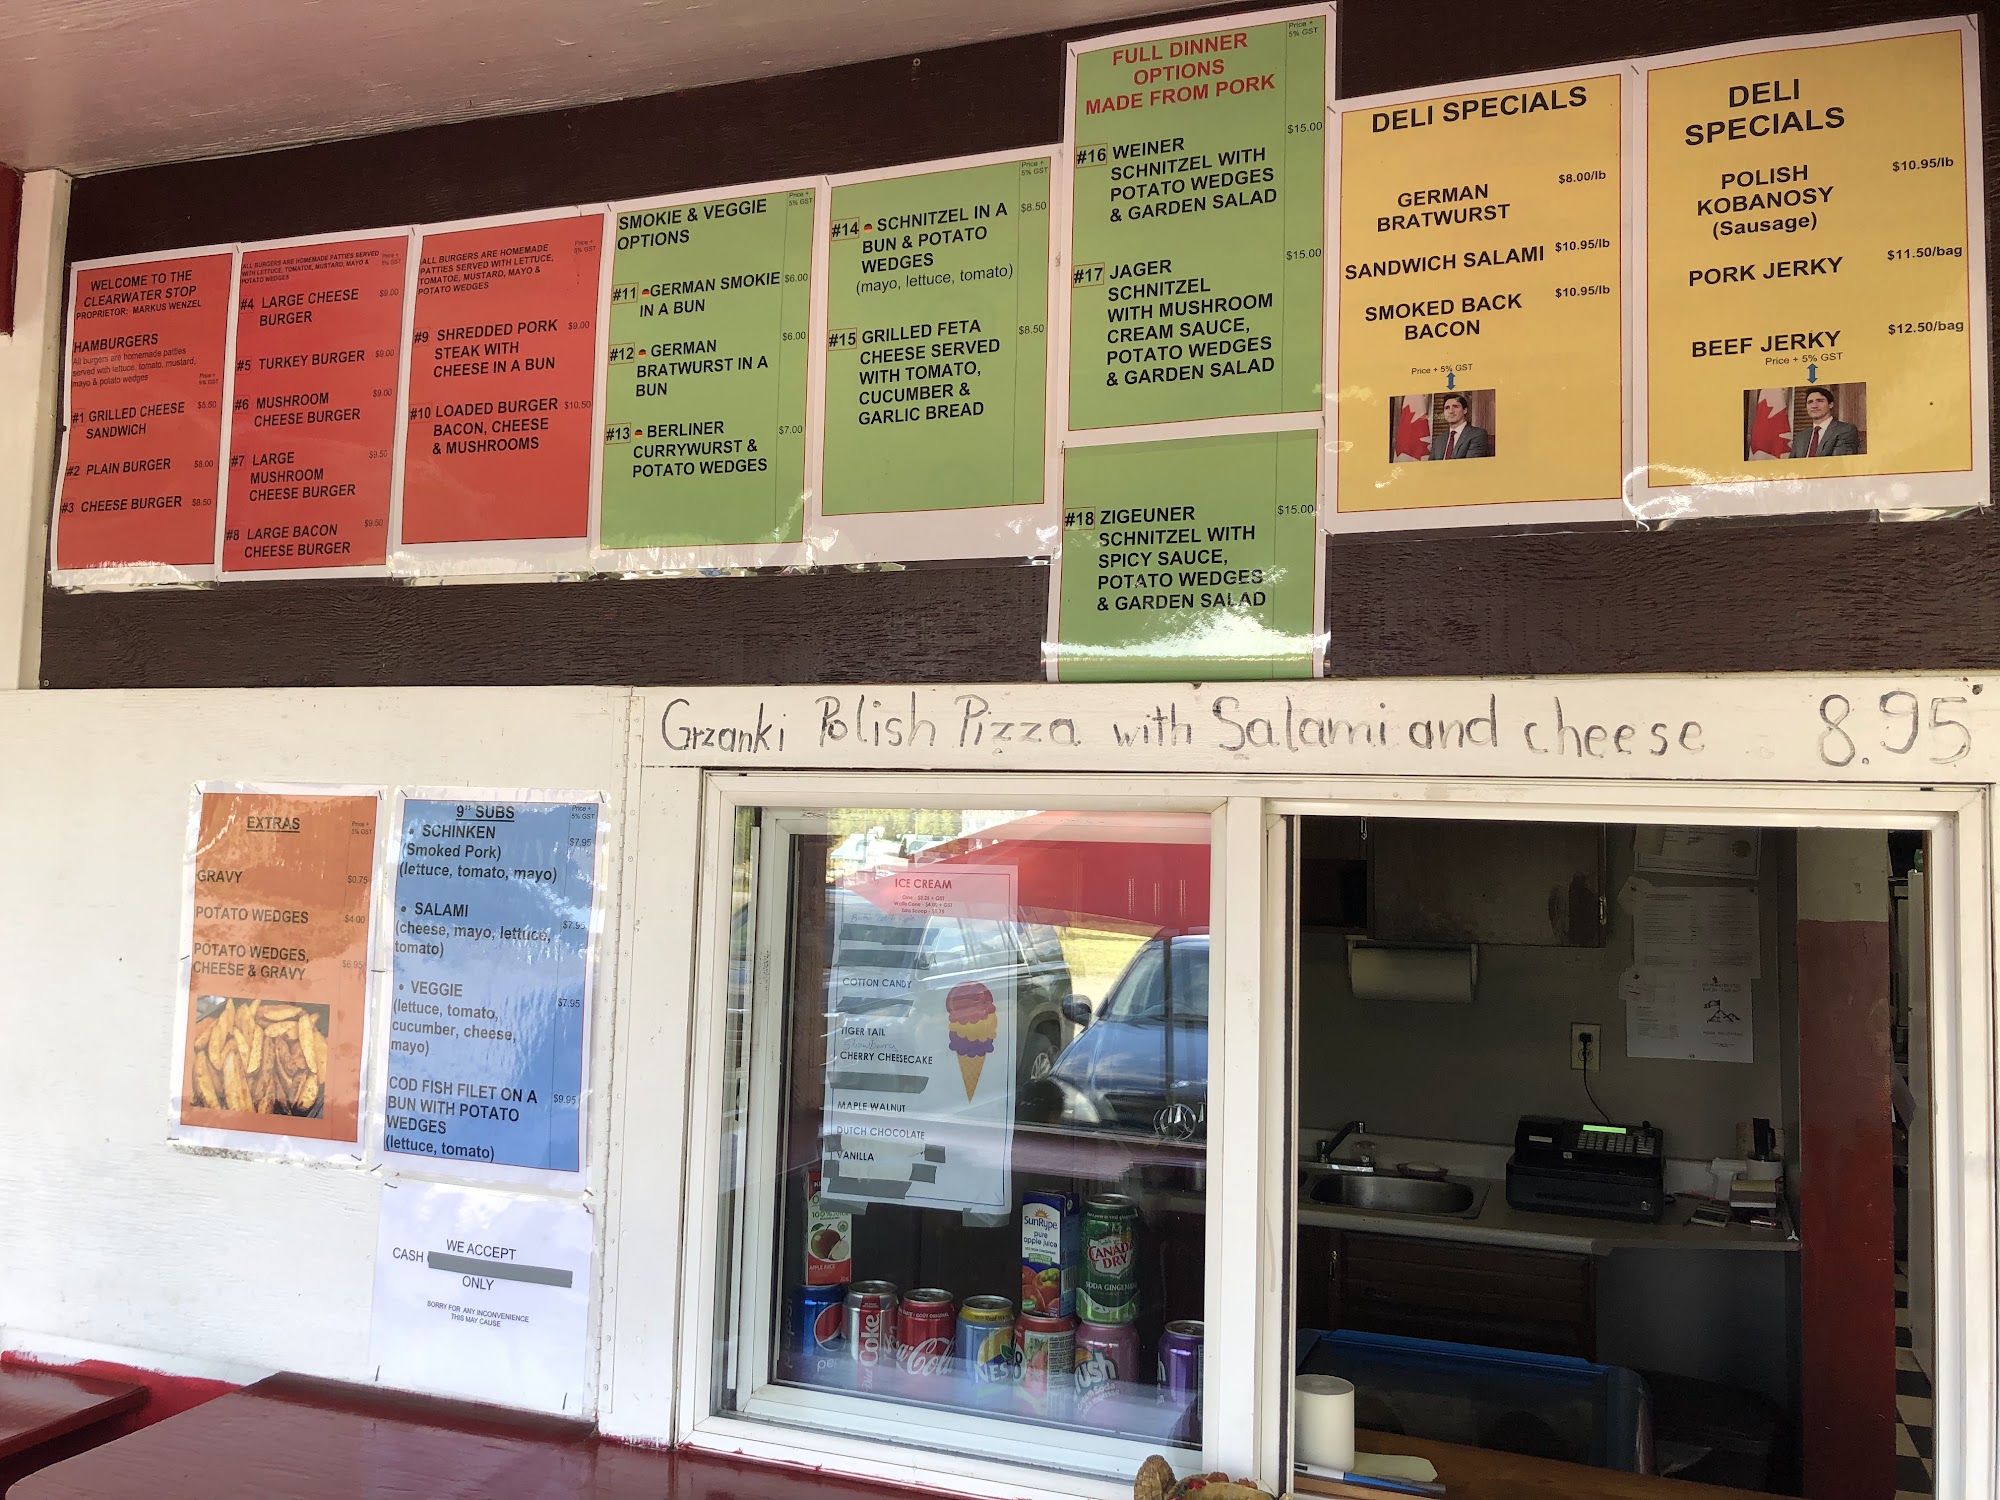 WELCOME TO THE
CLEARWATER STOP
PROPRIETOR: MARKUS WENZEL
HAMBURGERS
All burgers are homemade patties
served with lettuce, tomato, mustard,
mayo & potato wedges
Price +
5% GST
#1 GRILLED CHEESE SANDWICH $5.50
#2 PLAIN BURGER $8.00
#3 CHEESE BURGER $8.50
ALL BURGERS ARE HOMEMADE PATTIES SERVED
WITH LETTUCE, TOMATOE, MUSTARD, MAYO &
POTATO WEDGES
Price +
5% GST
#4 LARGE CHEESE $9.00
BURGER
#5 TURKEY BURGER $9.00
#6 MUSHROOM $9.00
CHEESE BURGER
#7 LARGE $9.50
MUSHROOM
CHEESE BURGER
#8 LARGE BACON $9.50
CHEESE BURGER
ALL BURGERS ARE HOMEMADE
PATTIES SERVED WITH LETTUCE,
TOMATOE, MUSTARD, MAYO &
POTATO WEDGES
Price +
5% GST
#9 SHREDDED PORK $9.00
STEAK WITH
CHEESE IN A BUN
#10 LOADED BURGER $10.50
BACON, CHEESE
& MUSHROOMS
SMOKIE & VEGGIE
OPTIONS
Price +
5% GST
#11 GERMAN SMOKIE $6.00
IN A BUN
#12 GERMAN $6.00
BRATWURST IN A
BUN
#13 BERLINER $7.00
CURRYWURST &
POTATO WEDGES
Price +
5% GST
#14 SCHNITZEL IN A $8.50
BUN & POTATO
WEDGES
(mayo, lettuce, tomato)
#15 GRILLED FETA $8.50
CHEESE SERVED
WITH TOMATO,
CUCUMBER &
GARLIC BREAD
Price +
5% GST
FULL DINNER
OPTIONS
MADE FROM PORK
#16 WEINER $15.00
SCHNITZEL WITH
POTATO WEDGES
& GARDEN SALAD
#17 JAGER $15.00
SCHNITZEL
WITH MUSHROOM
CREAM SAUCE,
POTATO WEDGES
& GARDEN SALAD
#18 ZIGEUNER $15.00
SCHNITZEL WITH
SPICY SAUCE,
POTATO WEDGES
& GARDEN SALAD
DELI SPECIALS
GERMAN $8.00/lb
BRATWURST
SANDWICH SALAMI $10.95/lb
SMOKED BACK $10.95/lb
BACON
Price + 5% GST
DELI
SPECIALS
POLISH $10.95/lb
KOBANOSY
(Sausage)
PORK JERKY $11.50/bag
BEEF JERKY $12.50/bag
Price + 5% GST
Grzanki Polish Pizza with Salami and cheese 8.95
EXTRAS
Price +
5% GST
GRAVY $0.75
POTATO WEDGES $4.00
POTATO WEDGES, $6.95
CHEESE & GRAVY
9" SUBS
Price +
5% GST
• SCHINKEN $7.95
(Smoked Pork)
(lettuce, tomato, mayo)
• SALAMI $7.95
(cheese, mayo, lettuce,
tomato)
• VEGGIE $7.95
(lettuce, tomato,
cucumber, cheese,
mayo)
COD FISH FILET ON A $9.95
BUN WITH POTATO
WEDGES
(lettuce, tomato)
WE ACCEPT
CASH
ONLY
SORRY FOR ANY INCONVENIENCE
THIS MAY CAUSE
ICE CREAM
COTTON CANDY
TIGER TAIL
Strawberry
CHERRY CHEESECAKE
MAPLE WALNUT
DUTCH CHOCOLATE
VANILLA
100%
APPLE JUICE
SunRype
pure
apple juice
CANADA
DRY
SODA GINGER
pepsi
Diet Coke
Coca-Cola
NES
ush